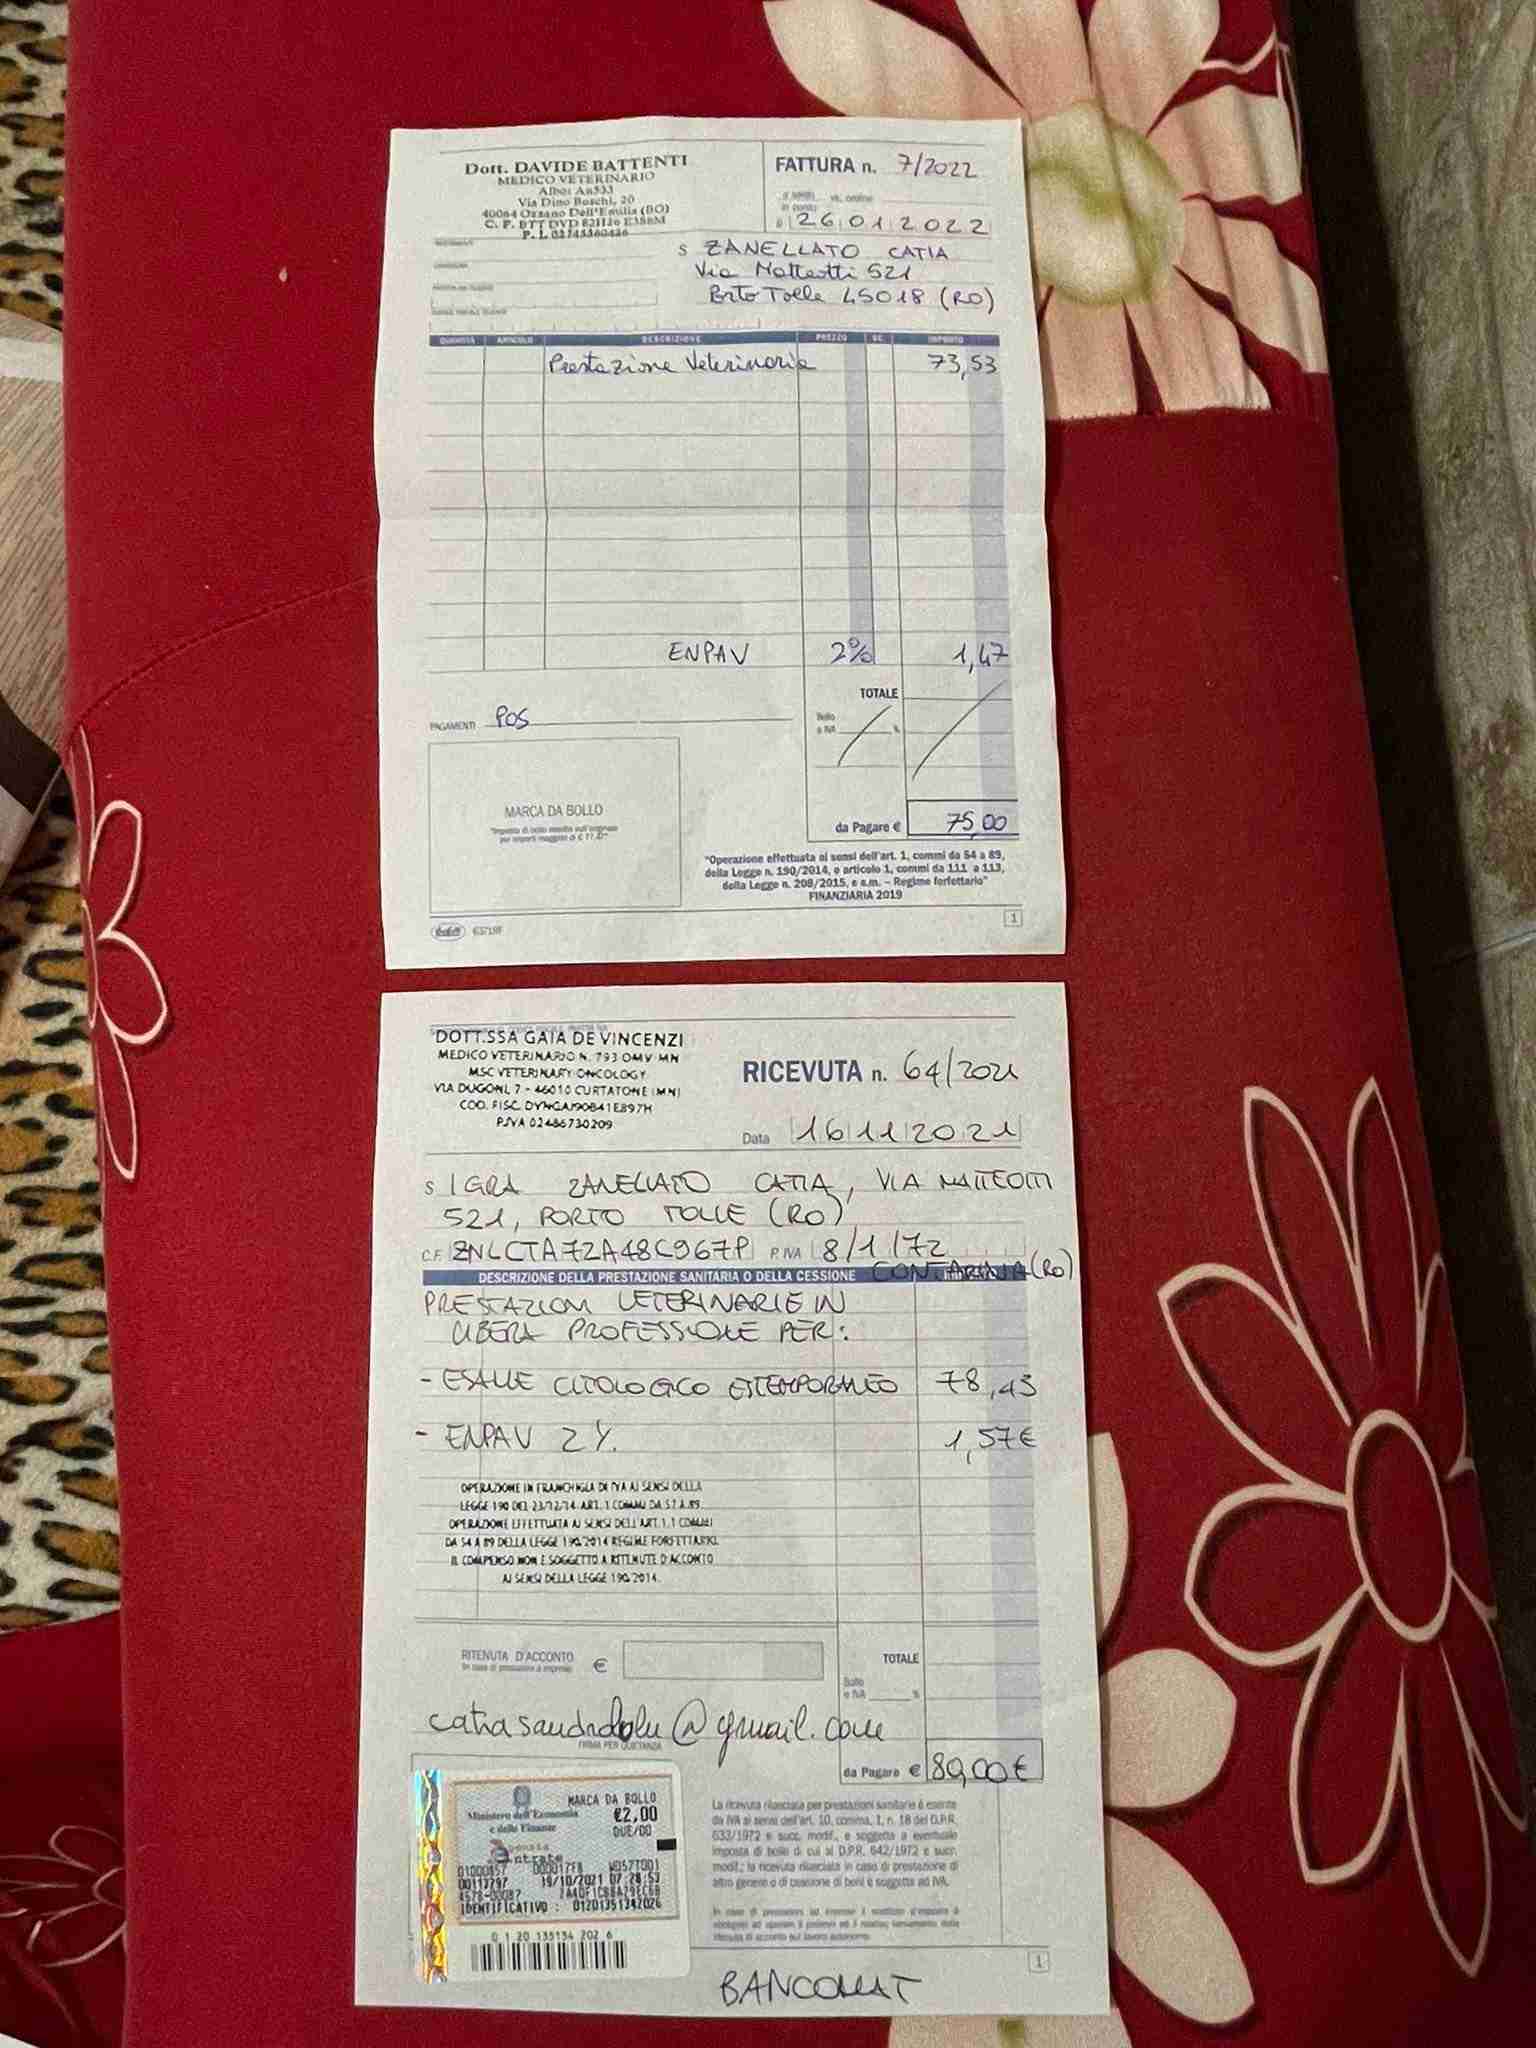 Dott. DAVIDE BATTENTI
MEDICO VETERINARIO
Albo: An533
Via Dino Boschi, 20
40064 Ozzano Dell'Emilia (BO)
C. F. BTT DVD 82H26 E388M
P. I. 02745360426
FATTURA n. 7/2022
26 01 2022
S ZANELLATO CATIA
Via Matteotti 521
Porto Tolle 45018 (RO)
QUANTITÀ ARTICOLO DESCRIZIONE PREZZO SC. IMPORTO
Prestazione Veterinaria 73,53
ENPAV 2% 1,47
TOTALE
Bollo
o IVA %
PAGAMENTI POS
MARCA DA BOLLO
da Pagare € 75,00
"Operazione effettuata ai sensi dell'art. 1, commi da 54 a 89,
della Legge n. 190/2014, o articolo 1, commi da 111 a 113,
della Legge n. 208/2015, e s.m. – Regime forfettario"
FINANZIARIA 2019
1
DOTT.SSA GAIA DE VINCENZI
MEDICO VETERINARIO N. 793 OMV MN
MSC VETERINARY ONCOLOGY
VIA DUGONI, 7 - 46010 CURTATONE (MN)
COD. FISC. DVNGAI90B41E897H
P.IVA 02486730209
RICEVUTA n. 64/2021
Data 16 11 2021
S IGRA ZANELLATO CATIA, VIA MATTEOTTI
521, PORTO TOLLE (RO)
C.F. ZNLCTA72A48C967P P. IVA 8/1/72
CONTARINA (RO)
DESCRIZIONE DELLA PRESTAZIONE SANITARIA O DELLA CESSIONE
PRESTAZIONI VETERINARIE IN
LIBERA PROFESSIONE PER:
- ESAME CITOLOGICO ESTEMPORANEO 78,43
- ENPAV 2%. 1,57€
OPERAZIONE IN FRANCHIGIA DI IVA AI SENSI DELLA
LEGGE 190 DEL 23/12/14 ART. 1 COMMI DA 57 A 89.
OPERAZIONE EFFETTUATA AI SENSI DELL'ART.1,1 COMMI
DA 54 A 89 DELLA LEGGE 190/2014 REGIME FORFETTARIO.
IL COMPENSO NON E SOGGETTO A RITENUTE D'ACCONTO
AI SENSI DELLA LEGGE 190/2014.
RITENUTA D'ACCONTO €
In caso di prestazioni a imprese
TOTALE
Bollo
o IVA %
@gmail.com
FIRMA PER QUIETANZA
da Pagare € 80,00€
Ministero dell'Economia
e delle Finanze
MARCA DA BOLLO
€2,00
DUE/00
ntrate
19/10/2021 07:28:53
IDENTIFICATIVO : 01201351342026
0 1 20 135134 202 6
La ricevuta rilasciata per prestazioni sanitarie è esente
da IVA ai sensi dell'art. 10, comma, 1, n. 18 del D.P.R.
633/1972 e succ. modif., e soggetta a eventuale
imposta di bollo di cui al D.P.R. 642/1972 e succ.
modif.; la ricevuta rilasciata in caso di prestazione di
altro genere o di cessione di beni è soggetta ad IVA.
1
BANCOMAT